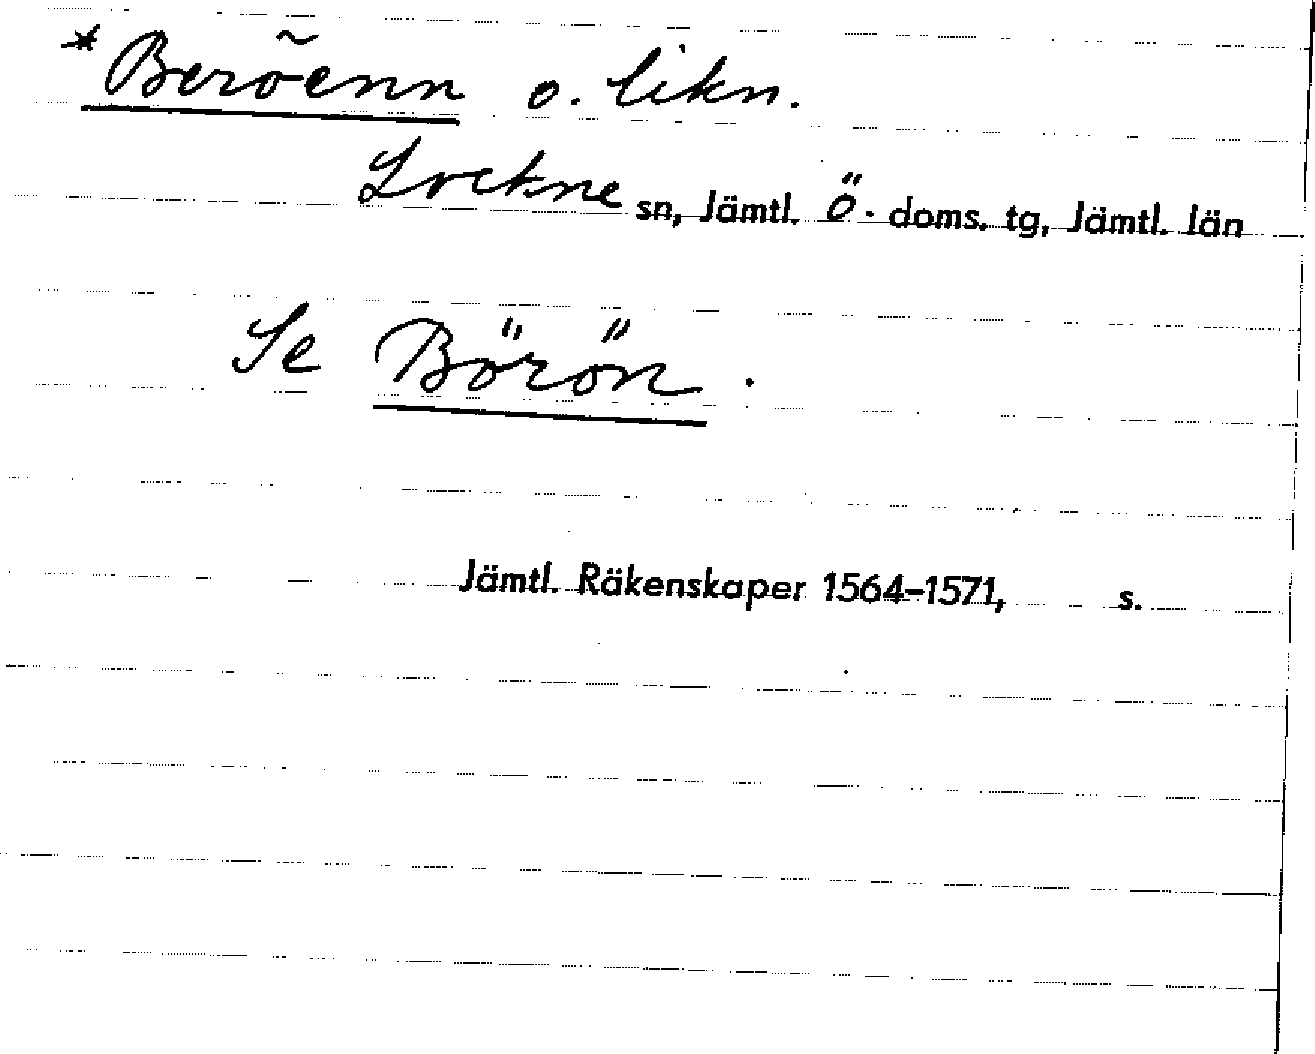 *Berõenn o. likn.
Lockne sn, Jämtl. Ö. doms. tg, Jämtl. län
Se Börön.
Jämtl. Räkenskaper 1564–1571, s.